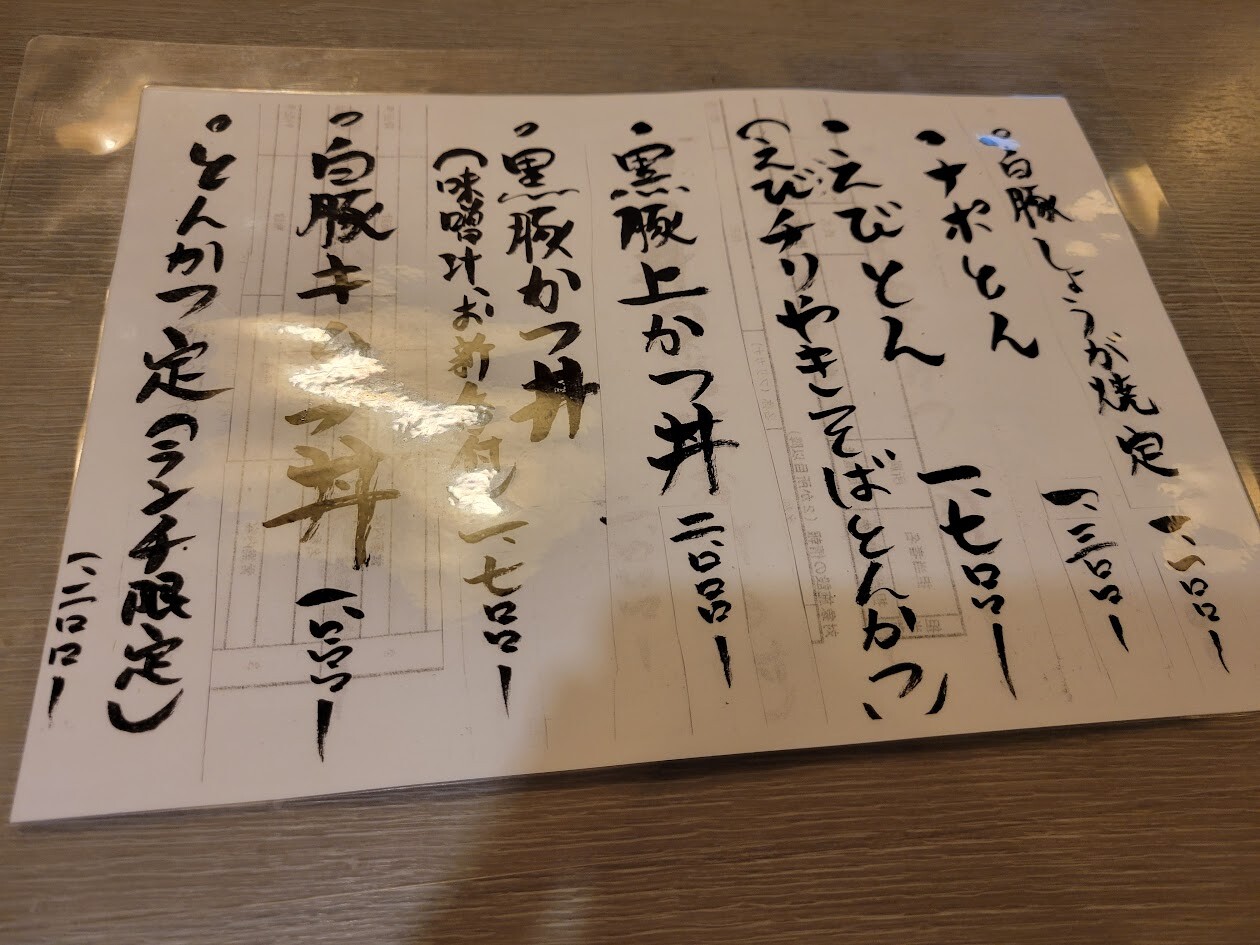 ・白豚しょうが焼定 一、一〇〇ー
・ナポとん 一、三〇〇ー
・えびとん 一、七〇〇ー
(えびチリやきそばとんかつ)
・黒豚上かつ丼 二、〇〇〇ー
・黒豚かつ丼
(味噌汁、お新香付) 一、七〇〇ー
・白豚 丼
・とんかつ定(ランチ限定)
一、二〇〇ー